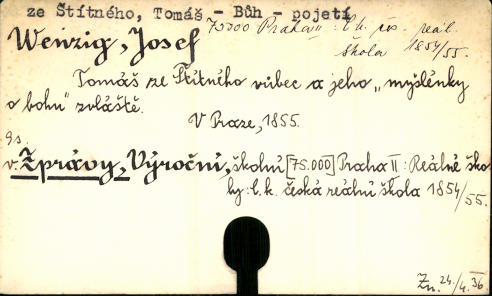 ze Štítného, Tomáš - Bůh - pojetí
Wenzig, Josef 75000 Praha II: C.k. reál.
škola 1854/55.
Tomáš ze Štítného vůbec a jeho „myšlénky
o bohu" zvláště.
V Praze, 1855.
9s
v: Zprávy, Výroční, školní [75.000] Praha II: Reálné ško-
ly: C.k. česká reální škola 1854/55.
Zn. 24./4. 36.